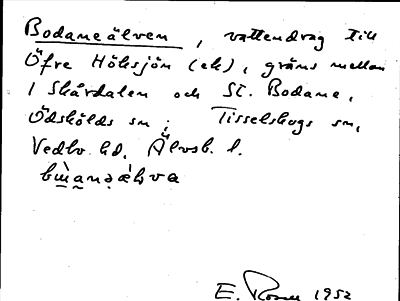 Bodaneälven, vattendrag till
Öfre Höksjön (ek), gräns mellan
1 Skårdalen och St. Bodane,
Ödskölds sn; Tisselskogs sn,
Vedbo hd. Älvsb. l.
E. Rosen 1952